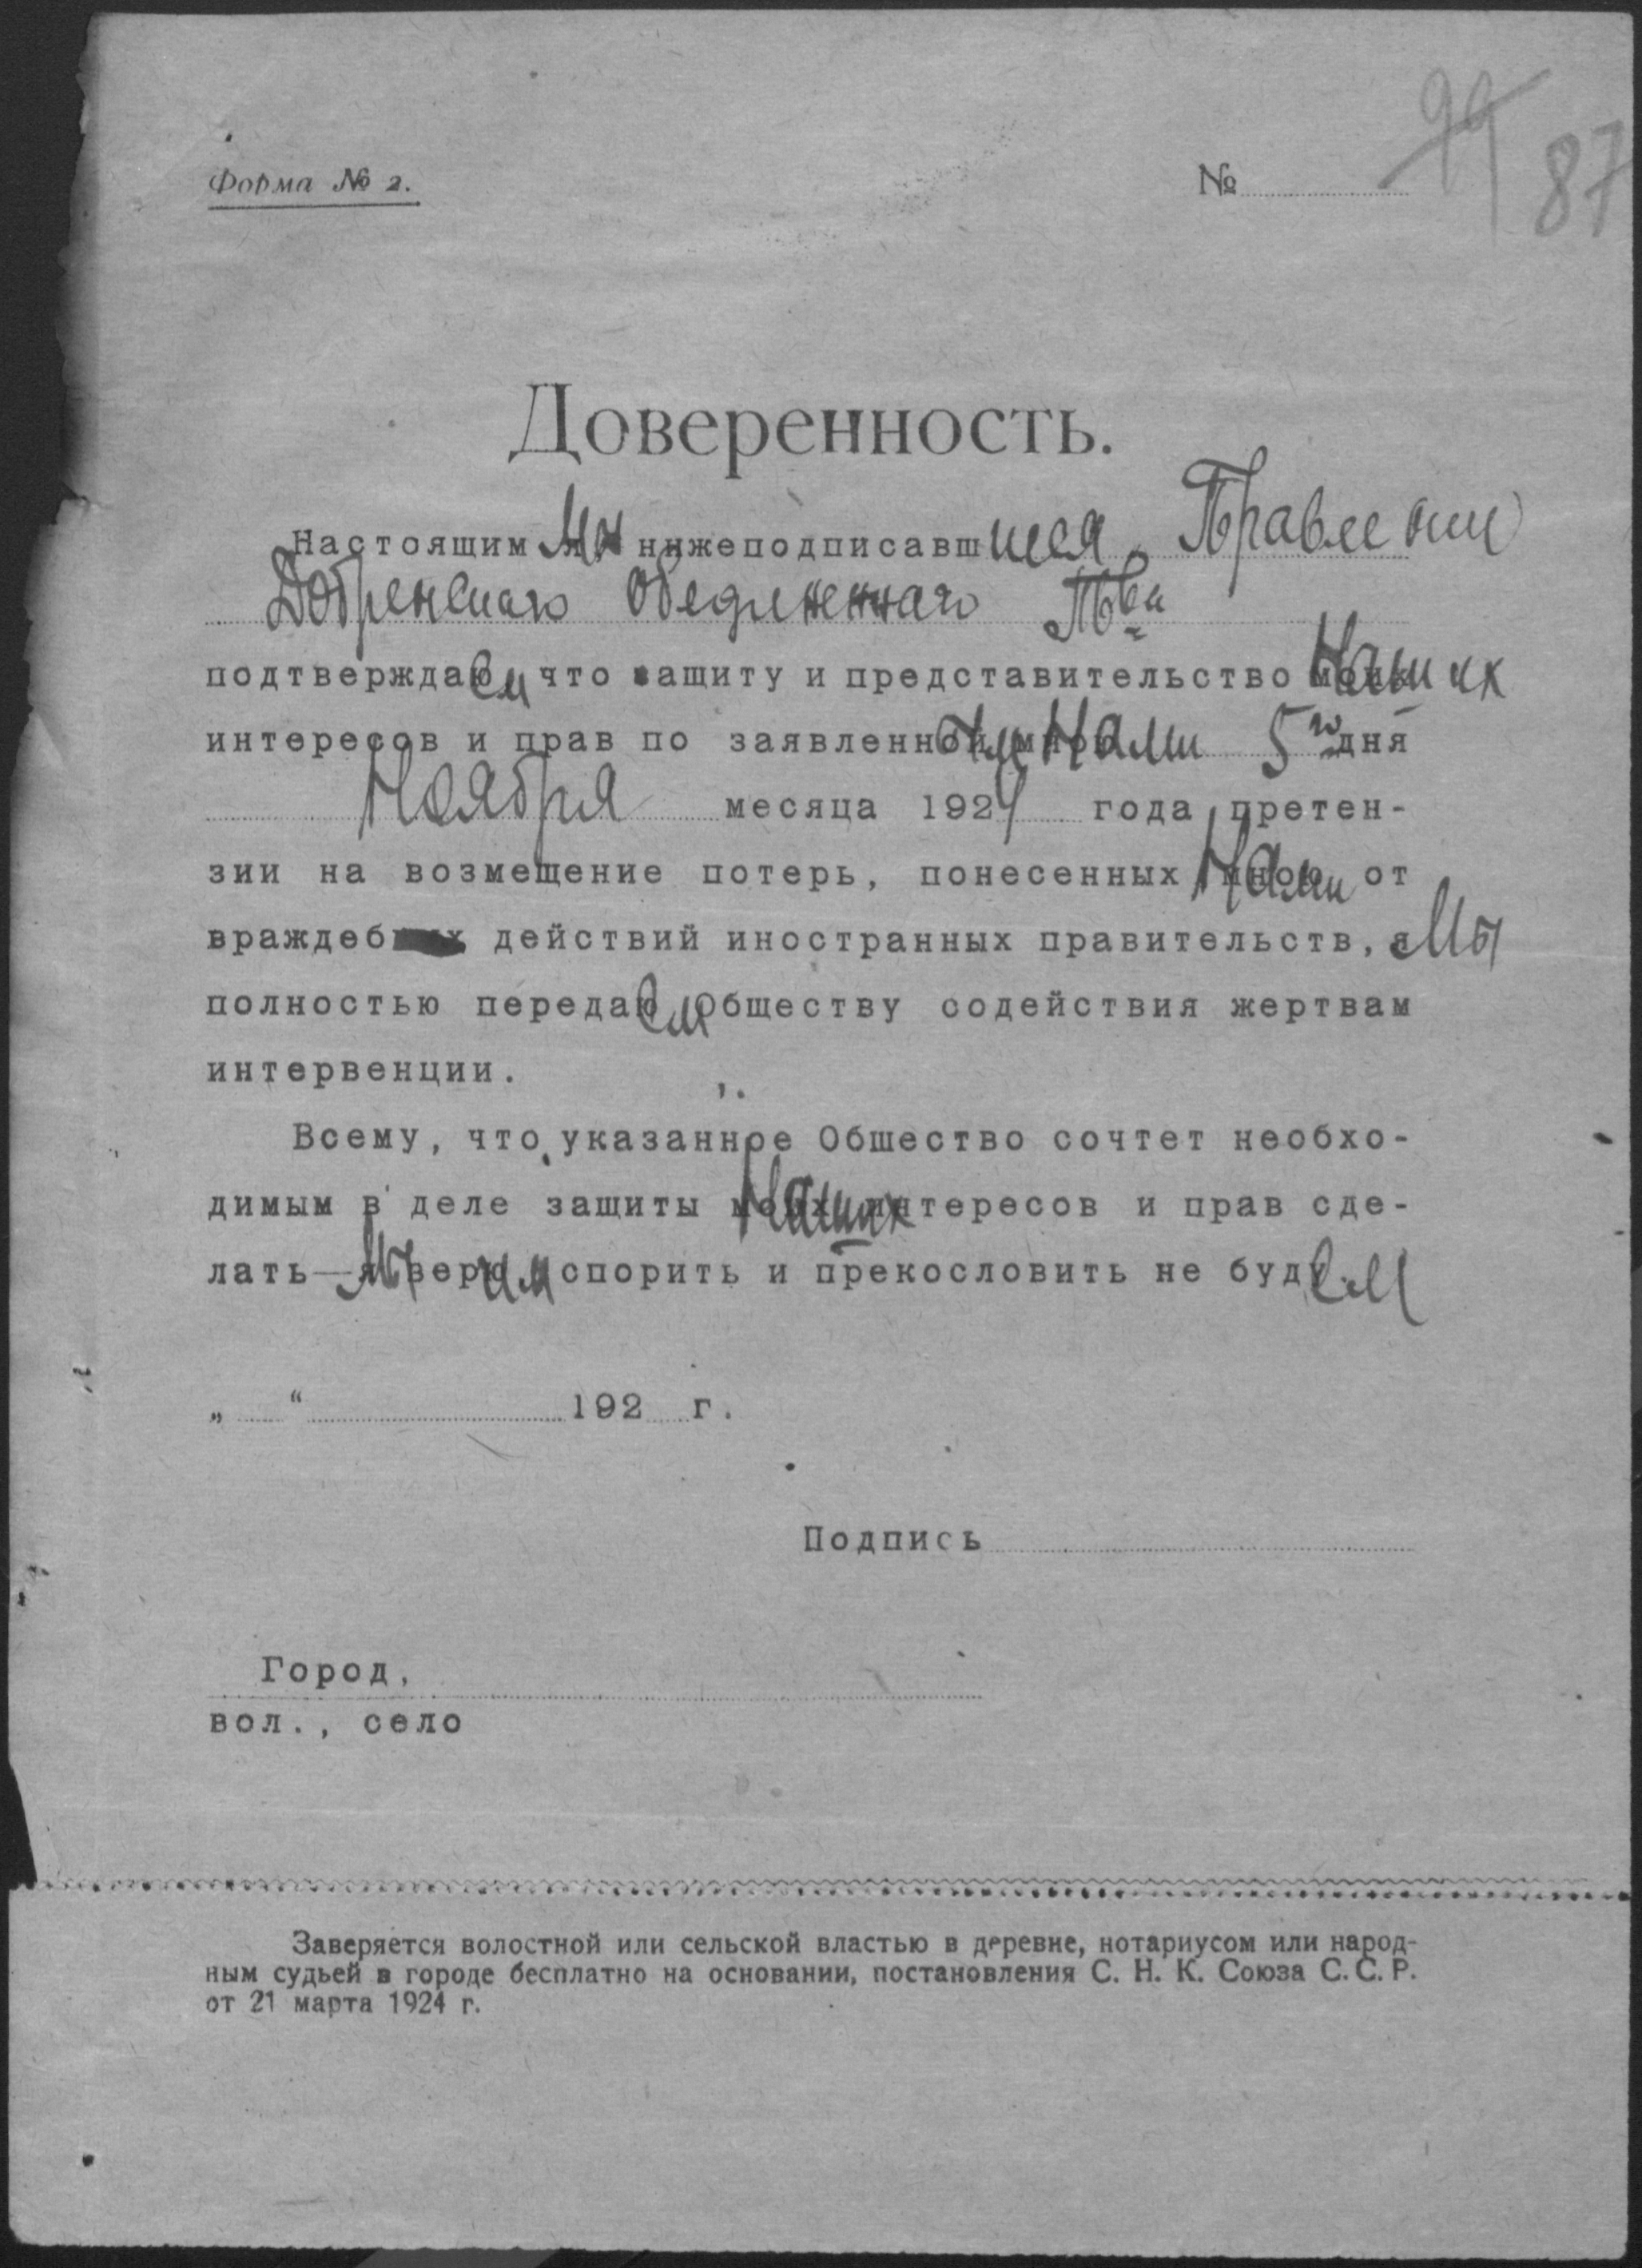 99 87
Форма № 2. №
Доверенность.
Настоящим Мы нижеподписавшиеся Правлении
Добренского Обединеннаго Тва
подтверждаем что защиту и представительство Наших
интересов и прав по заявленной Нами 5го дня
Ноября месяца 1924 года претен-
зии на возмещение потерь, понесенных Нами от
враждебных действий иностранных правительств, Мы
полностью передаем Обществу содействия жертвам
интервенции.
Всему, что указанное Общество сочтет необхо-
димым в деле защиты Наших интересов и прав сде-
лать—Мы верим спорить и прекословить не будем
„ “ 192 г.
Подпись
Город,
вол., село
Заверяется волостной или сельской властью в деревне, нотариусом или народ-
ным судьей в городе бесплатно на основании, постановления С. Н. К. Союза С. С. Р.
от 21 марта 1924 г.